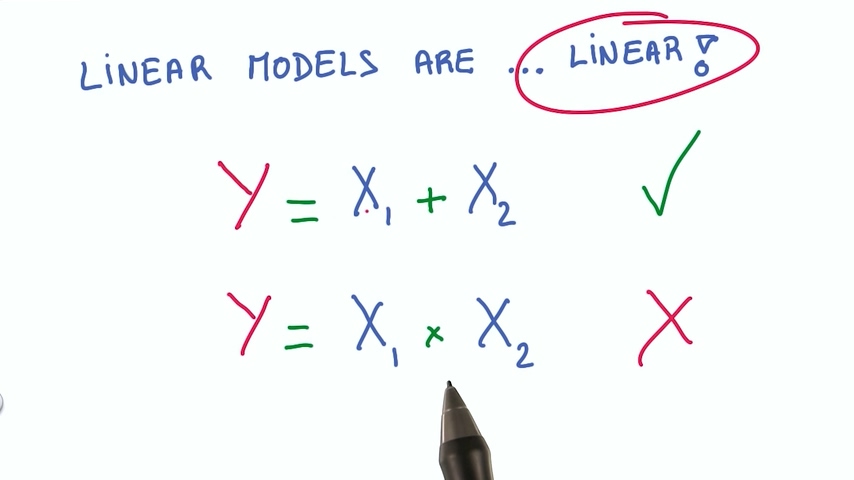 LiNEAR MODELS ARE ... LiNEAR!
Y = X₁ + X₂ ✓
Y = X₁ × X₂ X